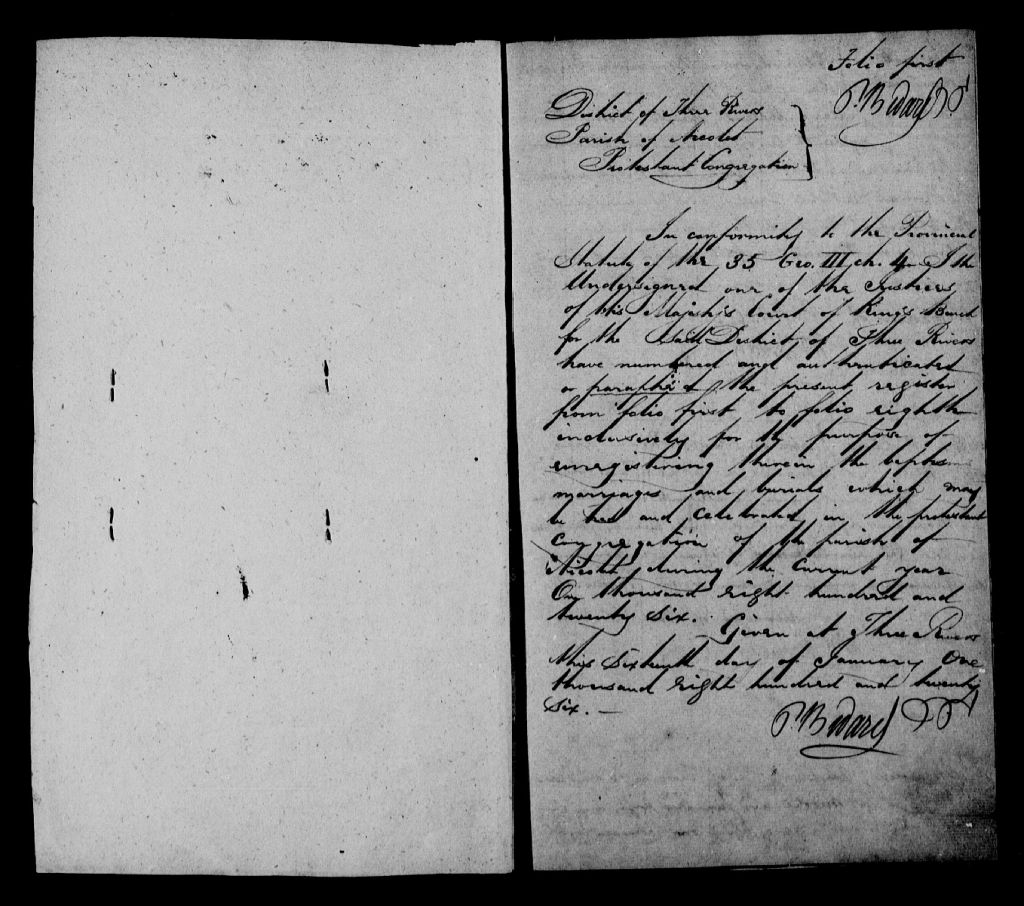 Folio first
P. Bedard
District of Three Rivers
Parish of Nicolet
Protestant Congregation
In conformity to the Provincial
Statute of the 35 Geo. III ch. 4 I the
Undersigned one of the Justices
of His Majesty's Court of King's Bench
for the Said District of Three Rivers
have numbered and authenticated
or paraphed the present register
from folio first to folio eighth
inclusively for the purpose of
enregistering therein the baptisms
marriages and burials which may
be had and celebrated in the protestant
Congregation of the parish of
Nicolet during the current year
One thousand eight hundred and
twenty Six. Given at Three Rivers
this Sixteenth day of January One
thousand eight hundred and twenty
Six. —
P. Bedard